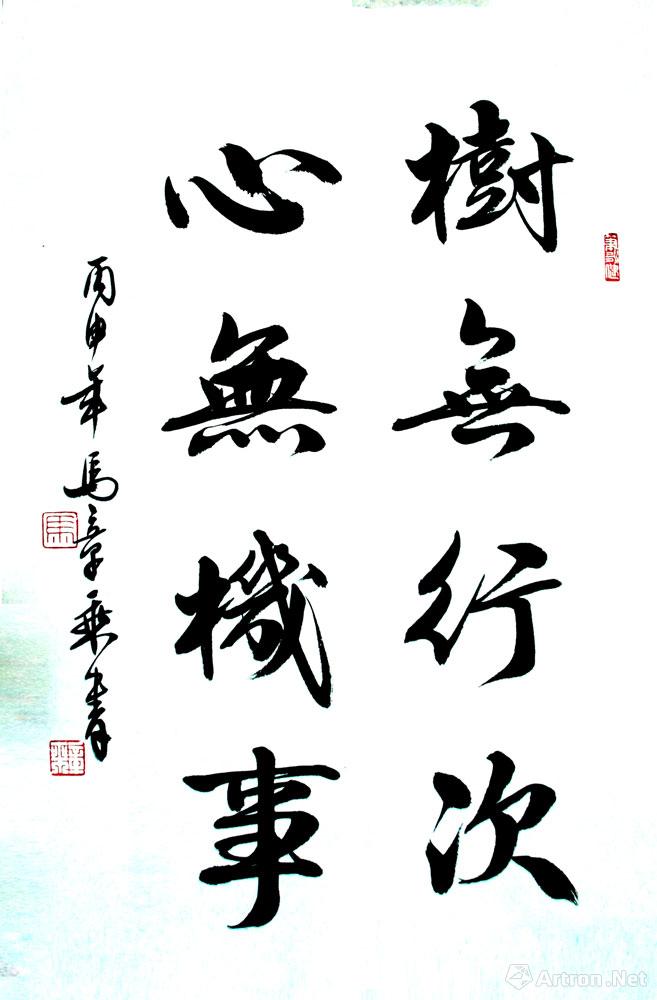 樹無行次
心無機事
丙申年馬章乘書
Artron.Net